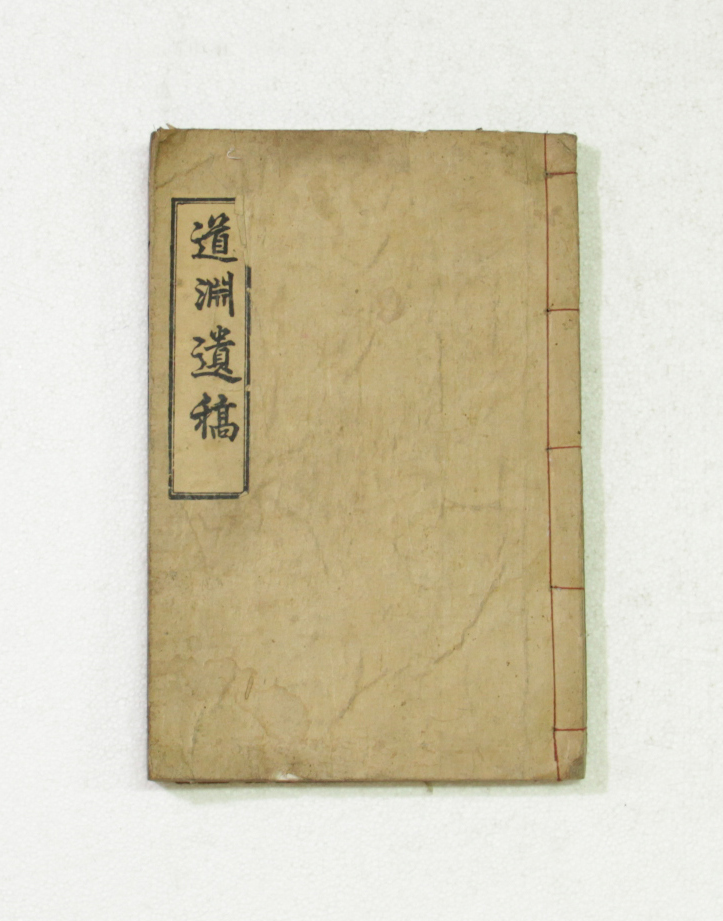 道淵遺稿